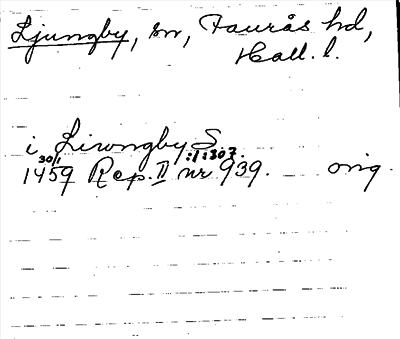 Ljungby, sn, Faurås hd,
Hall. l.
i Liwngby S.
:/:1307.
30/1
1459 Rep. II nr 939. orig.